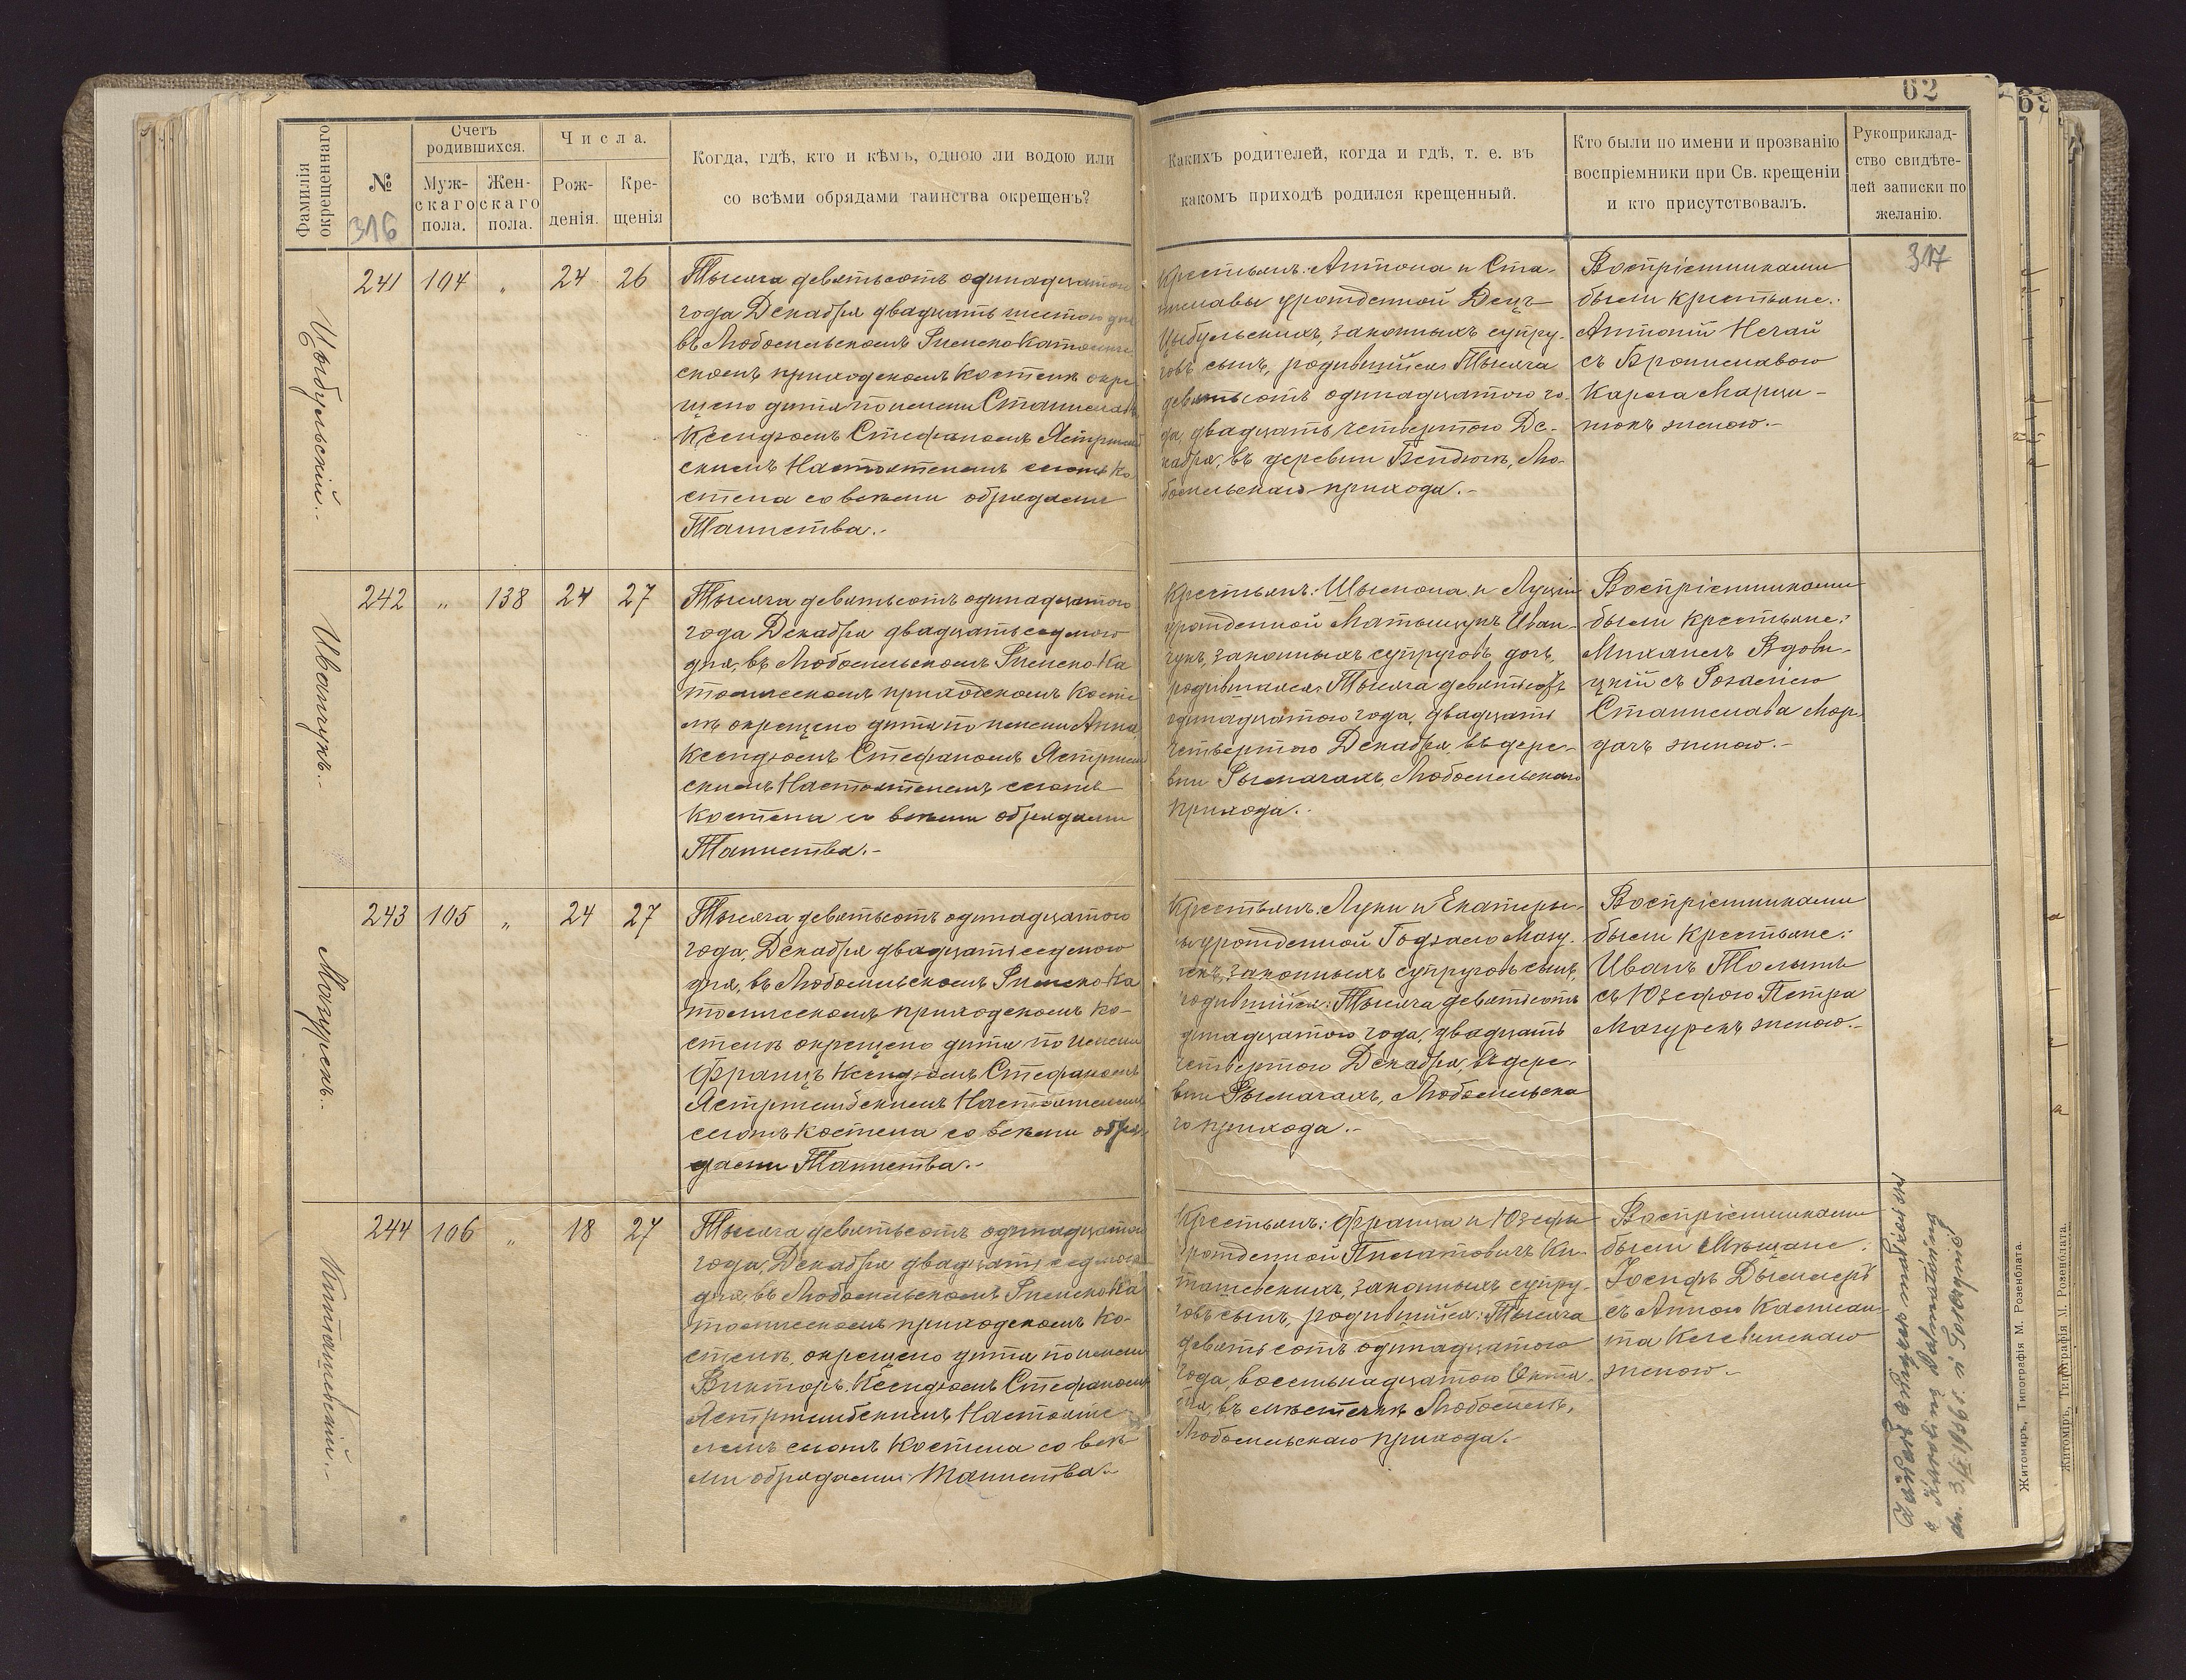 62
Фамилія окрещеннаго
№
316
Счетъ родившихся.
Мужскаго пола.
Женскаго пола.
Числа.
Рожденія.
Крещенія
Когда, гдѣ, кто и кѣмъ, одною ли водою или
со всѣми обрядами таинства окрещенъ?
Какихъ родителей, когда и гдѣ, т. е. въ
какомъ приходѣ родился крещенный.
Кто были по имени и прозванію
воспріемники при Св. крещеніи
и кто присутствовалъ.
Рукоприклад-
ство свидѣте-
лей записки по
желанію.
317
Цыбульскій.-
241 104 „ 24 26
Тысяча девятьсотъ одинадцатого
года Декабря двадцать шестого дня
въ Любомльскомъ Римско Католиче
скомъ приходскомъ костелѣ окре
щено дитя по имени Станиславъ
Ксендзомъ Стефаномъ Ястржемб
скимъ Настоятелемъ сего Ко
стела со всѣми обрядами
Таинства.-
Крестьянъ: Антона и Ста-
ниславы урожденной Децъ
Цыбульскихъ, законныхъ супру-
говъ сынъ, родившійся Тысяча
девятьсотъ одинадцатого го-
да, двадцать четвертого Де-
кабря, въ деревни Бендюгѣ, Лю-
бомльскаго прихода.-
Воспріемниками
были крестьяне:
Антоній Нечай
съ Брониславою
Карола Марци-
нюкъ женою.-
Иванчукъ.-
242 „ 138 24 27
Тысяча девятьсотъ одинадцатого
года Декабря двадцать седмого
дня, въ Любомльскомъ Римско Ка
толическомъ приходскомъ косте
лѣ окрещено дитя по имени Анна
Ксендзомъ Стефаномъ Ястржемб
скимъ Настоятелемъ сего
Костела со всѣми обрядами
Таинства.-
Крестьянъ: Шымона и Луціи
урожденной Матыщукъ Иван-
чукъ, законныхъ супруговъ дочь,
родившаяся: Тысяча девятьсотъ
одинадцатого года, двадцать
четвертого Декабря, въ дере-
вни Рымачахъ, Любомльскаго
прихода.-
Воспріемниками
были крестьяне:
Михаилъ Вдови-
цкій съ Розалею
Станислава Мор-
дачъ женою.-
Мазурекъ.-
243 105 „ 24 27
Тысяча девятьсотъ одинадцатого
года, Декабря двадцать седмого
дня, въ Любомльскомъ Римско Ка
толическомъ приходскомъ Ко-
стелѣ окрещено дитя по имени
Францъ Ксендзомъ Стефаномъ
Ястржембскимъ Настоятелемъ
сего Костела со всѣми обря-
дами Таинства.-
Крестьянъ: Луки и Екатеры-
ны урожденной Годзало Мазу-
рекъ, законныхъ супруговъ сынъ,
родившійся: Тысяча девятьсотъ
одинадцатого года, двадцать
четвертого Декабря, въ дере-
вни Рымачахъ, Любомльска
го прихода.-
Воспріемниками
были крестьяне:
Иванъ
съ Юзефою Петра
Мазурекъ женою.-
Киташевскій.-
244 106 „ 18 27
Тысяча девятьсотъ одинадцатого
года, Декабря двадцать седмого
дня, въ Любомльскомъ Римско Ка
толическомъ приходскомъ Ко-
стелѣ, окрещено дитя по имени
Викторъ. Ксендзомъ Стефаномъ
Ястржембскимъ Настояте-
лемъ сего Костела со всѣ-
ми обрядами Таинства.-
Крестьянъ: Франца и Юзефы
урожденной Ки-
ташевскихъ, законныхъ супру-
говъ сынъ, родившійся: Тысяча
девятьсотъ одинадцатого
года, восемьнадцатого Октя-
бря, въ мѣстечкѣ Любомлѣ,
Любомльскаго прихода.-
Воспріемниками
были Мѣщане:
Іосифъ
съ Анною
женою.-
Zawarł związek małżeński
z Karoliną
dn. 3/II 1936 r.
Житомиръ, Типографія М. Розенблата.
Житомиръ, Типографія М. Розенблата.